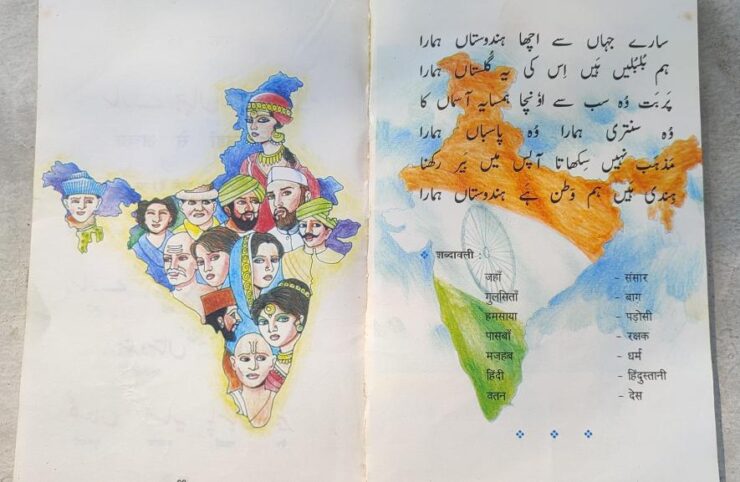 سارے جہاں سے اچھا ہندوستاں ہمارا
ہم بُلبُلیں ہَیں اِس کی یہ گُلستاں ہمارا
پَربَت وُہ سب سے اُونچا ہمسایہ آسماں کا
وُہ سنتری ہمارا وُہ پاسباں ہمارا
مَذہَب نہیں سِکھاتا آپس میں بَیر رکھنا
ہِندی ہَیں ہم وطن ہَے ہندوستاں ہمارا
शब्दावली :
जहाँ - संसार
गुलसिताँ - बाग
हमसाया - पड़ोसी
पासबाँ - रक्षक
मजहब - धर्म
हिंदी - हिंदुस्तानी
वतन - देस